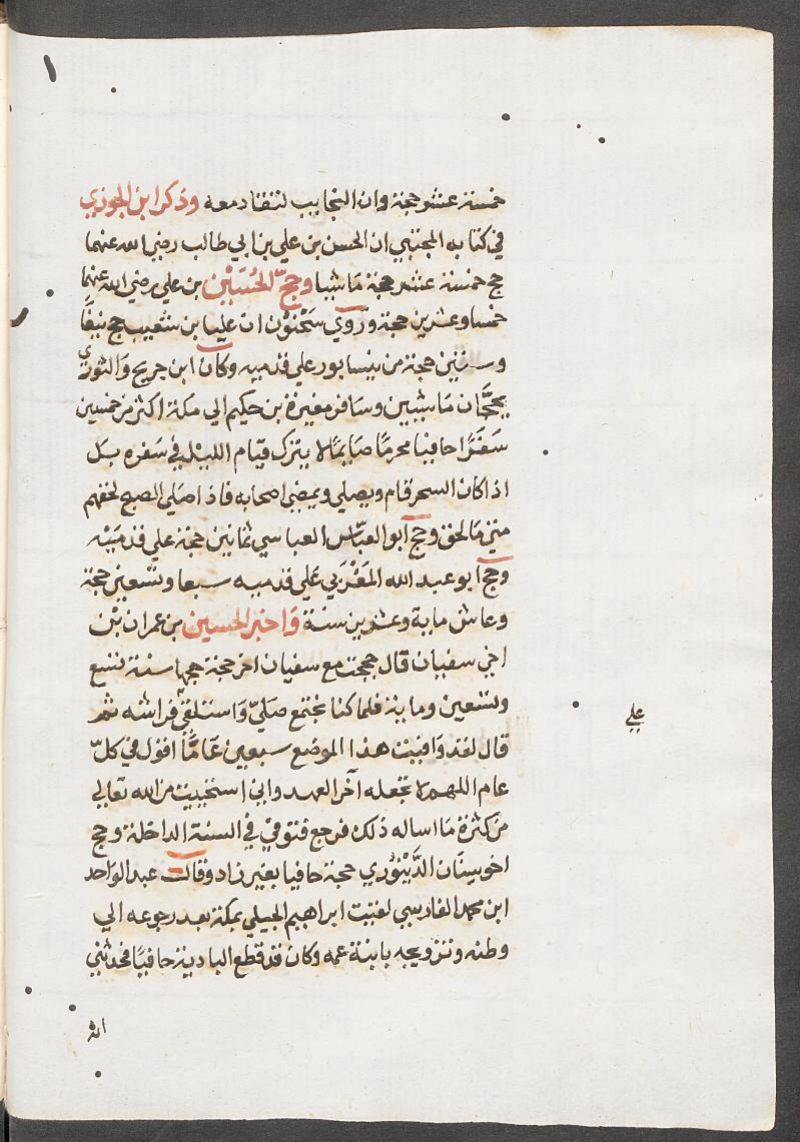 خمسة عشر حجة وان النجايب لتقاد معه وذكر ابن الجوزي
في كتابه المجتبي ان الحسن بن علي بن ابي طالب رضي الله عنهما
حج خمسة عشر حجة ماشيا وحج الحُسَيْن بن علي رضي الله عنهما
خمسا وعشرين حجة ورَوي سَحْنوُن ان عليا بن شعيب حج نيفًا
وستين حجة من نيسابور علي قدميه وكان ابن جريج والثوري
يحجَّان ماشيين وسافر مغيرة بن حكيم الي مكة اكثر من خمسين
سَفَرًا حافيا محرمًا صَايمًا لا يترك قيام الليل في سَفره بل
اذا كان السحر قام ويصلي ويمضي اصحابه فاذا صَلي الصبح لحقهم
متي مَا لحق وحج ابو العبّاس العباسي ثمانين حجة علي قدمَيْه
وحج ابو عبد الله المَغْرَبي عَلي قدميه سبعا وتسعين حجة
وعاش ماية وعشرين سنة وَاخبر الحسين بن عمران بْن
اخي سفيان قال حججت مع سفيان اخر حجة حجها سنة تسع
وتسعين وماية فلما كنا بجمع صَليّ وَاستلقي فراشه ثم
علي
قال لقد وَافيت هذا الموضع سبعين عَامًا اقول في كلّ
عام اللهم لا تجعله آخر العهد واني استحييت من الله تعالي
من كثرة مَا اساله ذلك فرجع فتوفي في السنة الداخلة وحج
اخو سنان الدَّيْنوُري حجة حافيا بغير زاد وقالـ عبد الواحد
ابن محمد الفارسي لقيت ابراهيم الجيلي بمكة بعد رجوعه الي
وطنه وتزويجه بابنة عمه وكان قد قطع البادية حافيًا فحدثني
انه